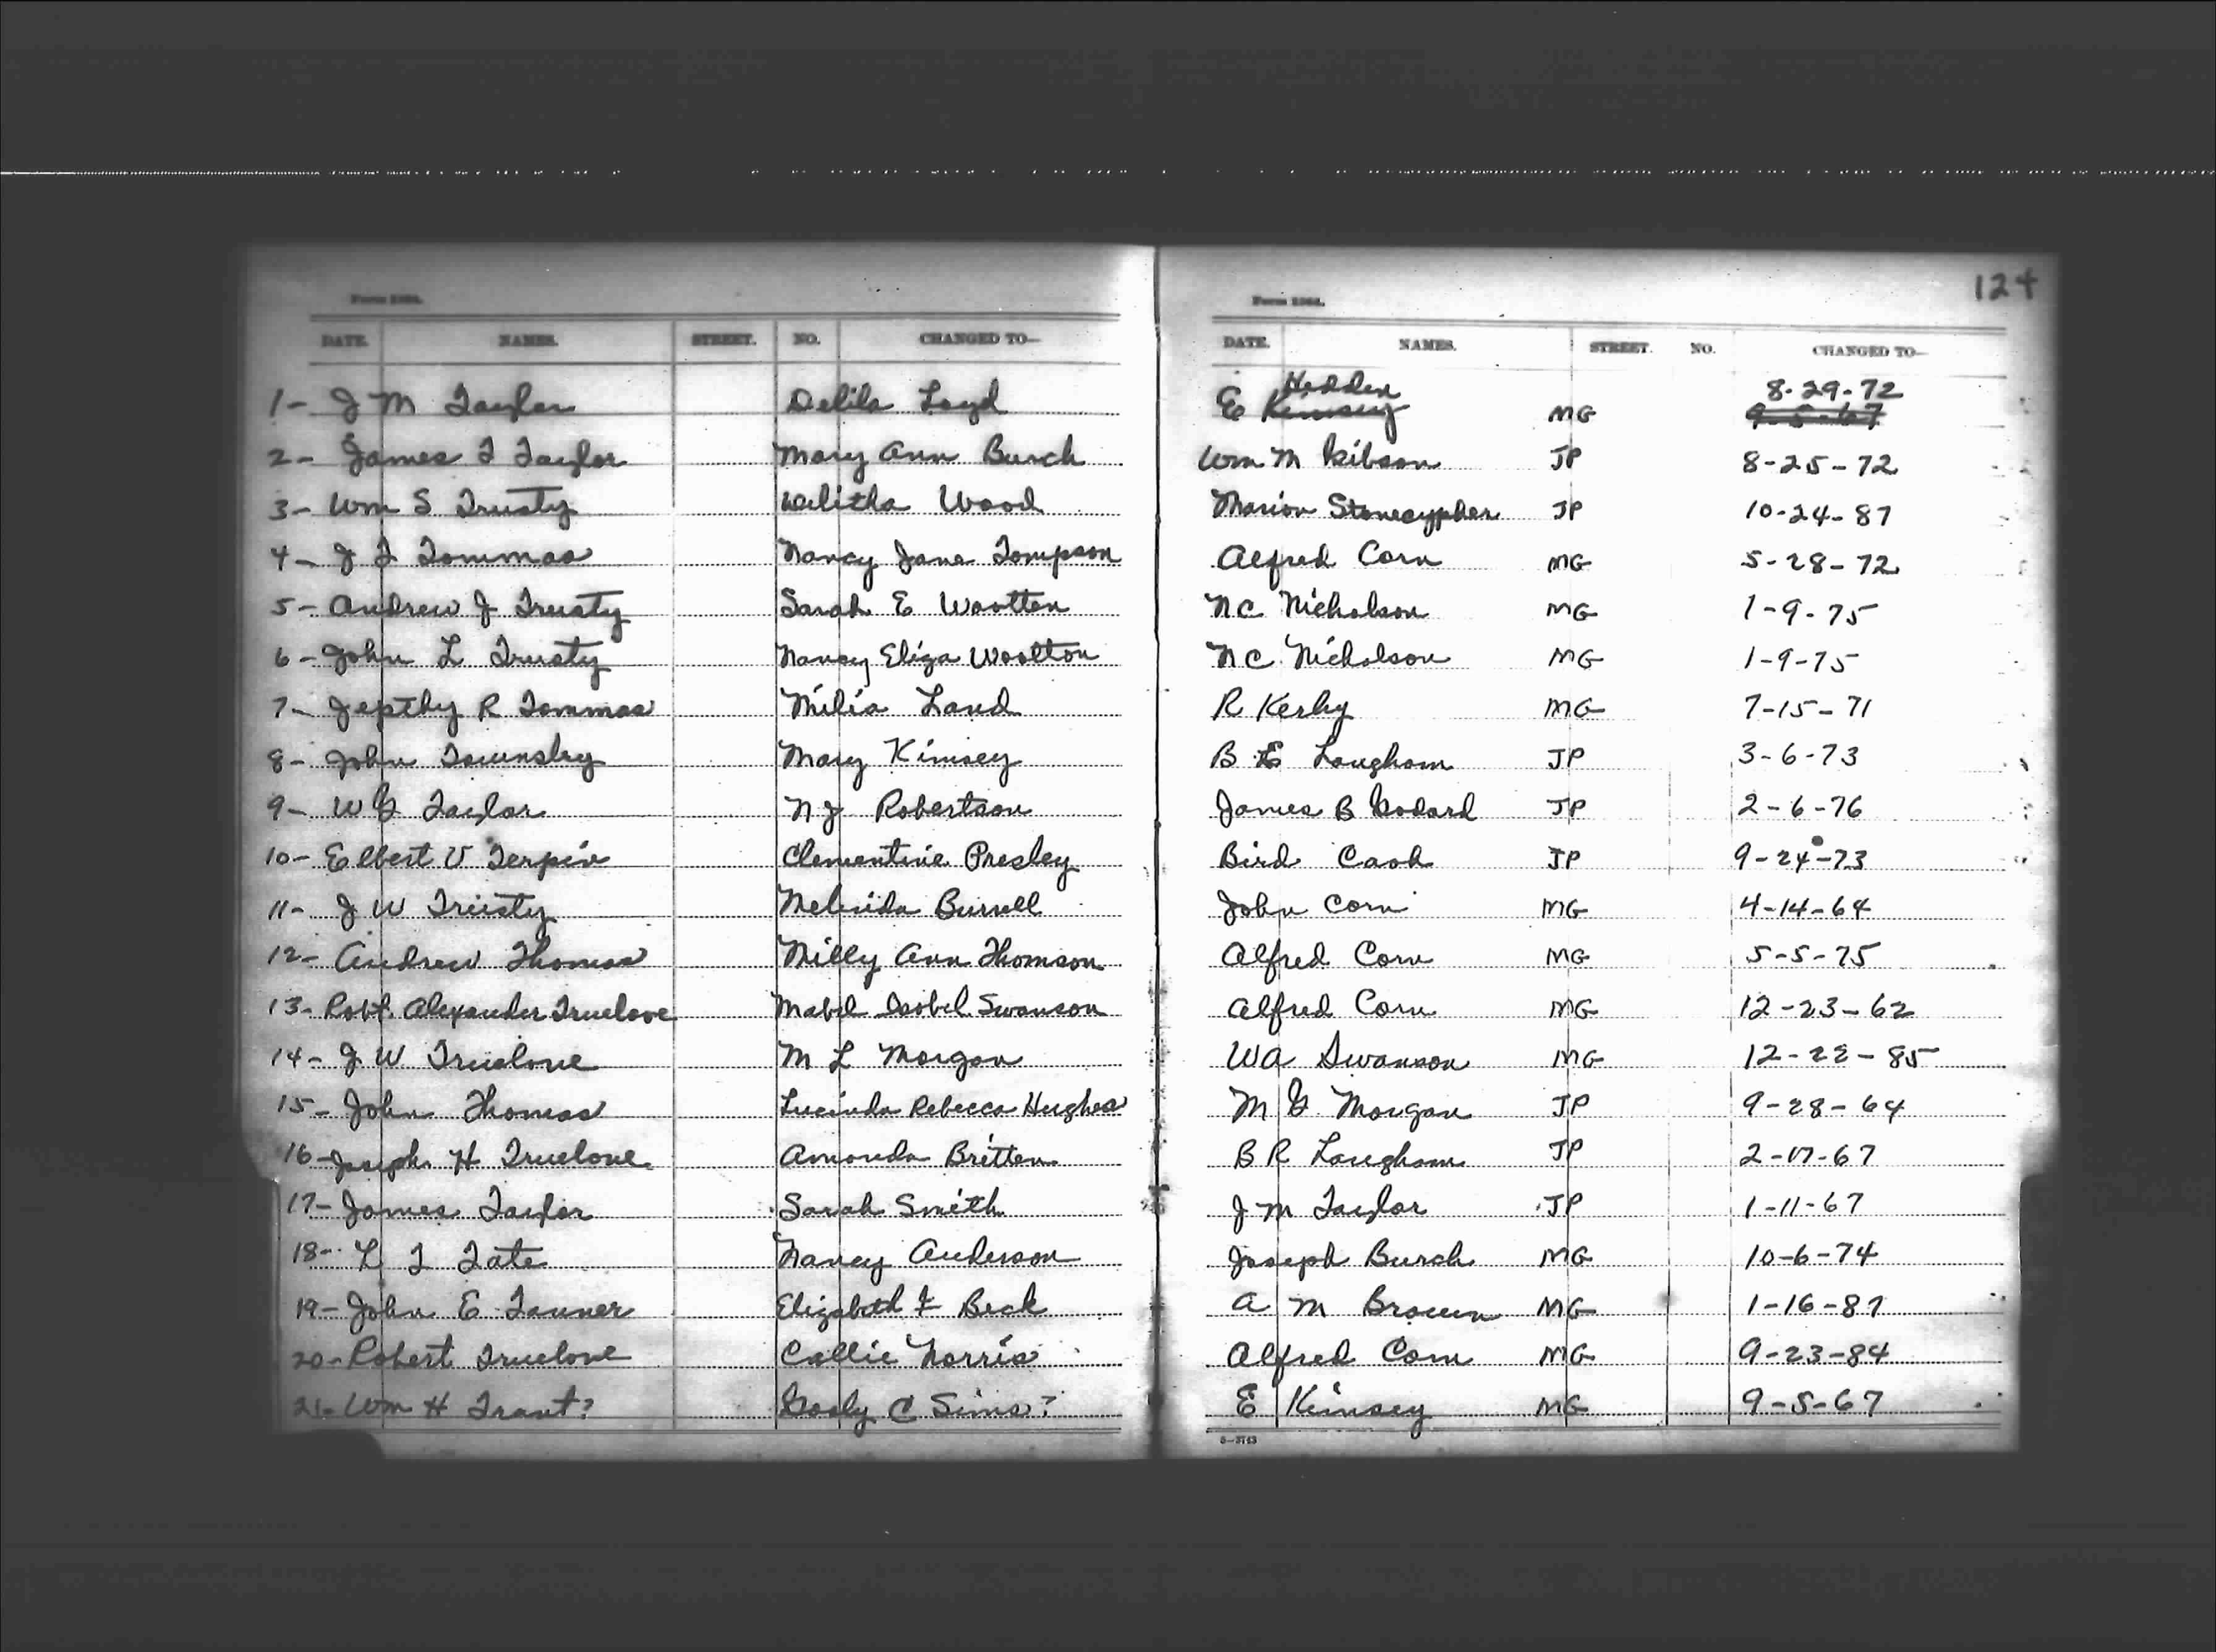 124
Form 2364. Form 2364.
DATE. NAMES. STREET. NO. CHANGED TO— DATE. NAMES. STREET. NO. CHANGED TO—
Hedden 8-29-72
1- J M Taylor Delila Loyd E Kimsey MG 9-5-67
2- James T Taylor Mary Ann Burch Wm M Gibson JP 8-25-72
3- Wm S Trusty Walitha Wood Marion Stonecypher JP 10-24-87
4- J T Tommas Nancy Jane Tompson Alfred Corn MG 5-28-72
5- Andrew J Trusty Sarah E Wootten N C Nicholson MG 1-9-75
6- John L Trusty Nancy Eliza Wootton N C Nicholson MG 1-9-75
7- Jepthy R Tommas Milia Land R Kerby MG 7-15-71
8- John Townsley Mary Kimsey B E Langham JP 3-6-73
9- W G Taylor N J Robertson James B Godard JP 2-6-76
10- Elbert V Terpin Clementine Presley Bird Cash JP 9-24-73
11- J W Trusty Melinda Burrell John Corn MG 4-14-64
12- Andrew Thomas Milly Ann Thomson Alfred Corn MG 5-5-75
13- Robt. Alexander Truelove Mabel Isobel Swanson Alfred Corn MG 12-23-62
14- J W Truelove M L Morgan W A Swanson MG 12-22-85
15- John Thomas Lucinda Rebecca Hughes M G Morgan JP 9-28-64
16- Joseph H Truelove Amanda Britten B R Langham JP 2-17-67
17- James Taylor Sarah Smith J M Taylor JP 1-11-67
18- L T Tate Nancy Anderson Joseph Burch MG 10-6-74
19- John E Tanner Elizabeth F Beck A M Brown MG 1-16-87
20- Robert Truelove Callie Norris Alfred Corn MG 9-23-84
21- Wm H Trant? Gooly C Sims? E Kimsey MG 9-5-67
5-3743